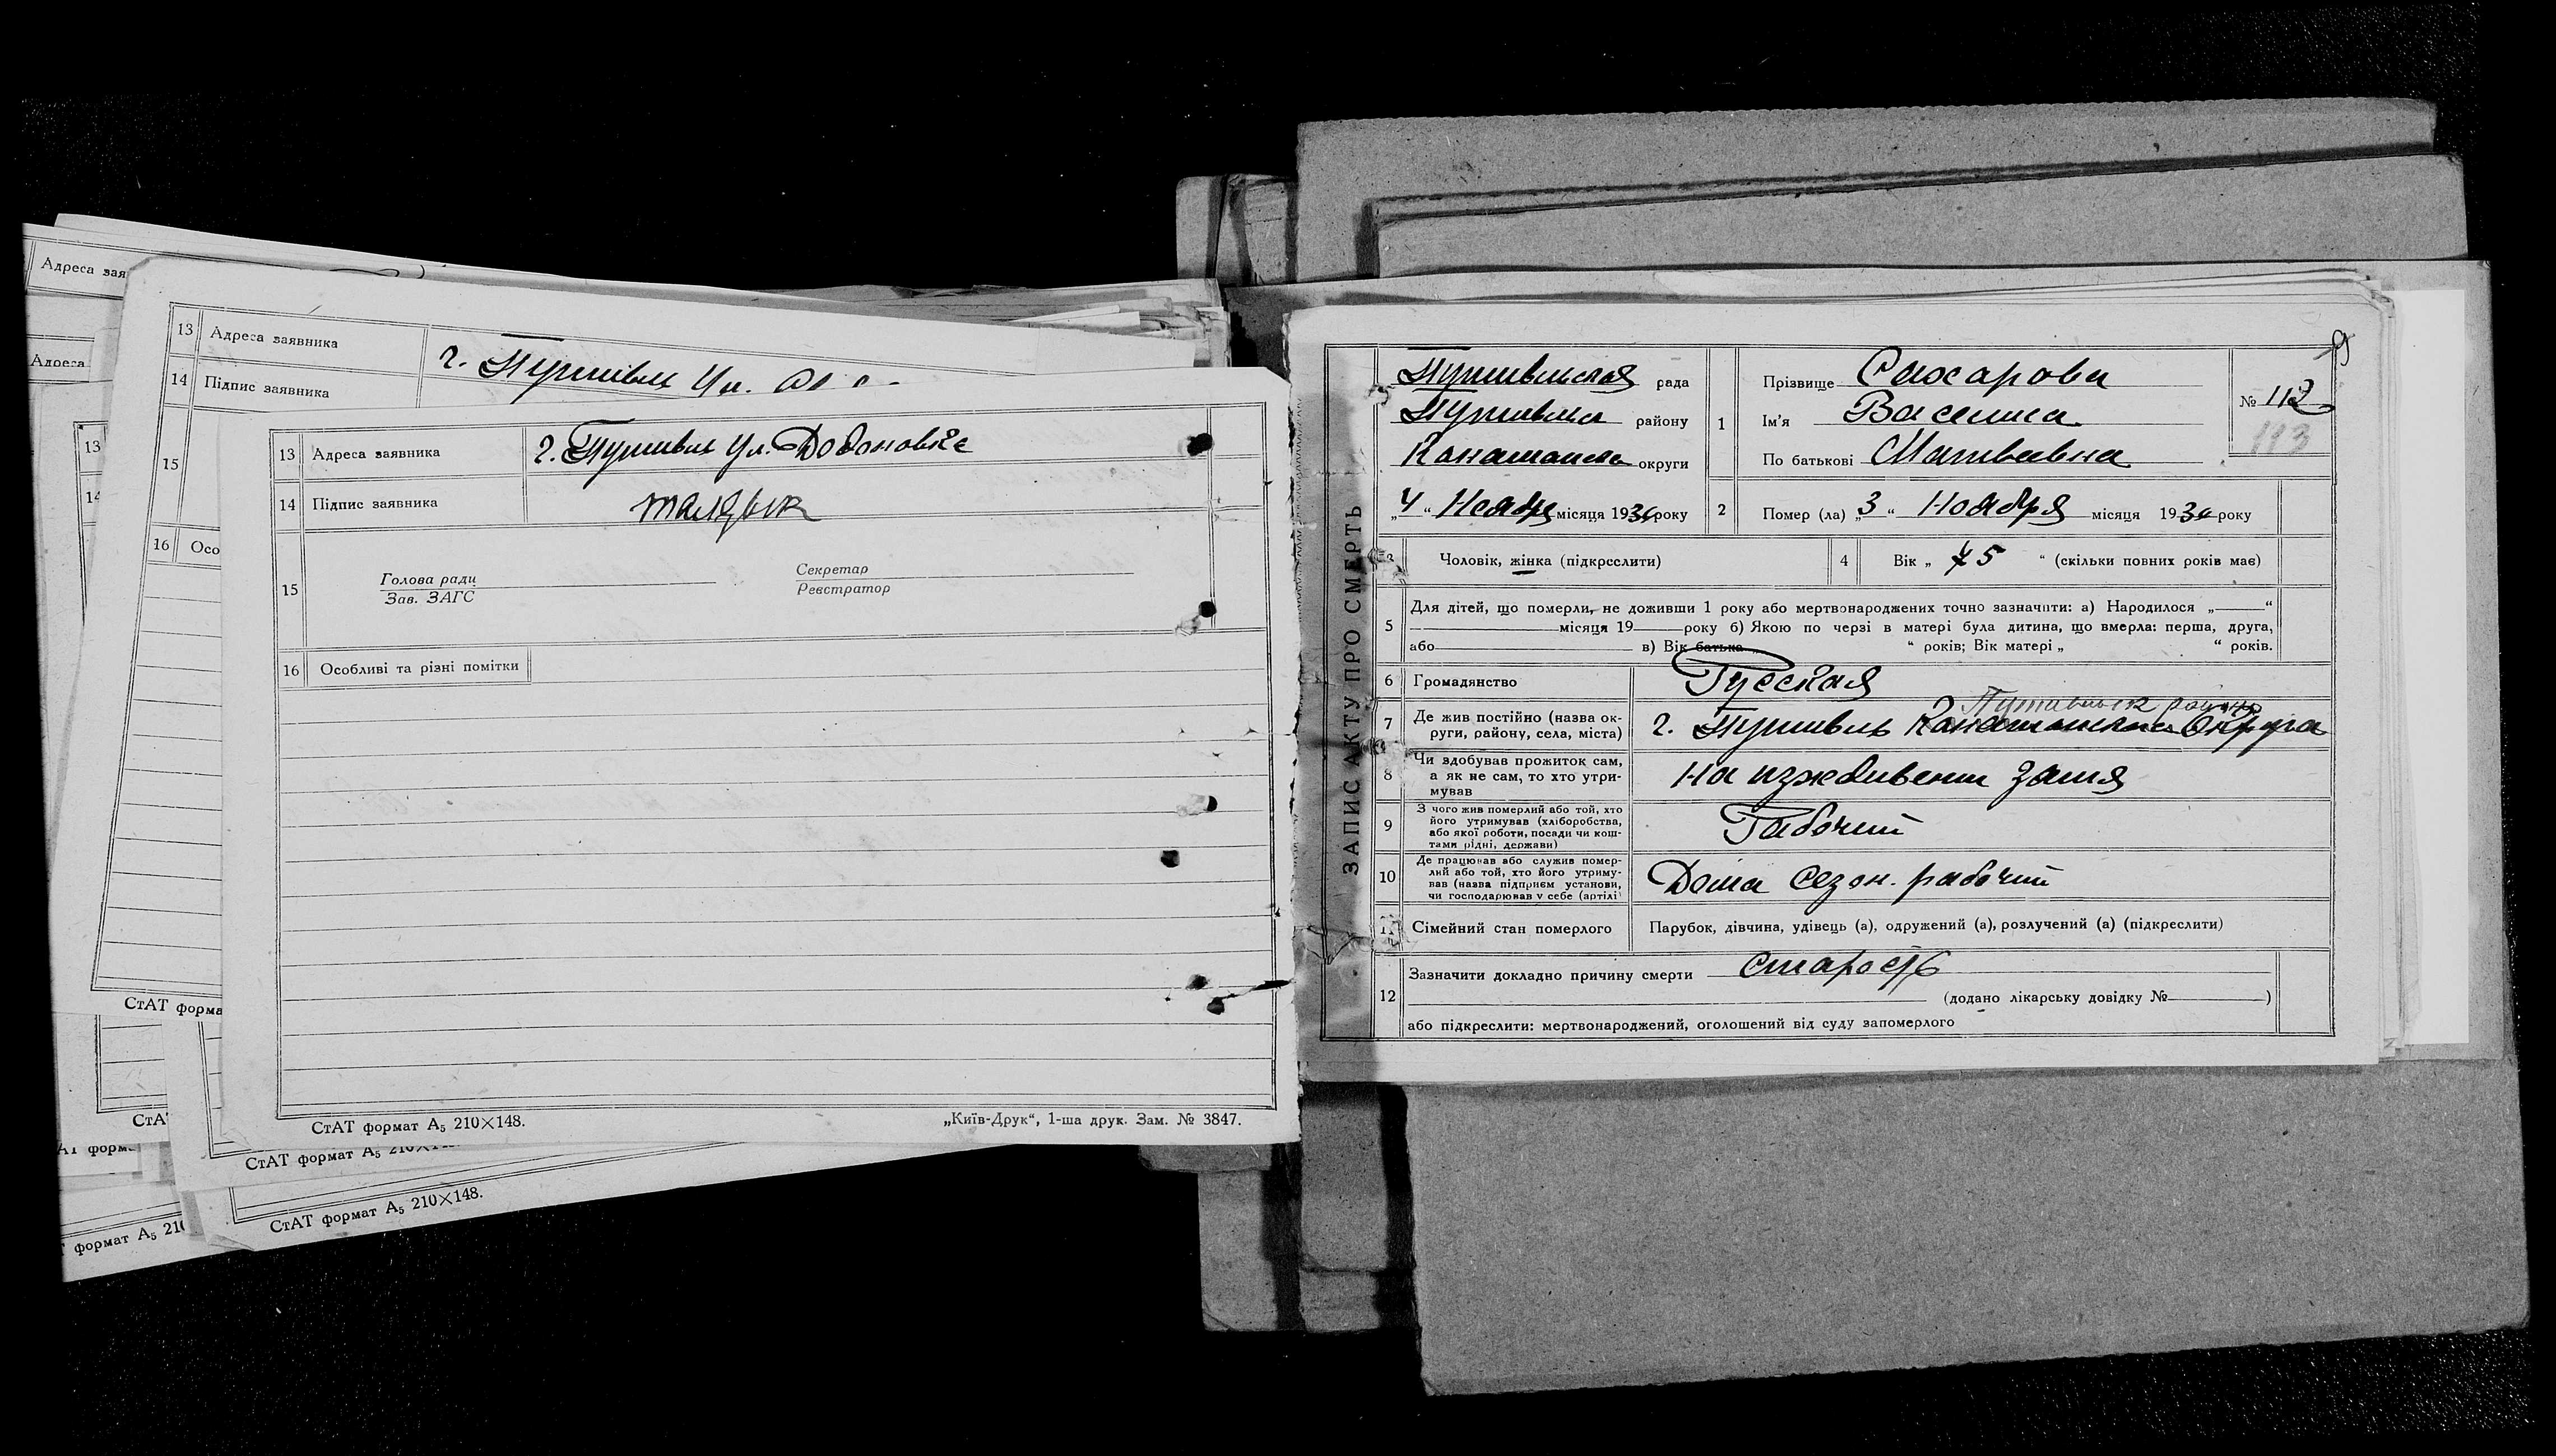 Адреса зая
Адреса
13 Адреса заявника г. Путивль Ул.
14 Підпис заявника
15
16 Осо
13
14
13 Адреса заявника г. Путивль Ул. Довоновка
14 Підпис заявника
15 Голова ради Секретар
Зав. ЗАГС Реєстратор
16 Особливі та різні помітки
СтАТ формат А5 210×148.
„Київ-Друк“, 1-ша друк. Зам. № 3847.
СтАТ форма
СтА
СтАТ формат А5 210×148.
СтАТ формат А5 210×148.
формат А5 210
ЗАПИС АКТУ ПРО СМЕРТЬ
Путивльская рада
Путивльск району
Конотопск округи
„4“ Ноября місяця 1930 року
1 Прізвище Сахарова
Ім'я Васелиса
По батькові Матвеевна
№ 112
113
2 Помер (ла) „3“ Ноября місяця 1930 року
3 Чоловік, жінка (підкреслити)
4 Вік „75“ (скільки повних років має)
5 Для дітей, що померли, не доживши 1 року або мертвонароджених точно зазначити: а) Народилося „ “
місяця 19 року б) Якою по черзі в матері була дитина, що вмерла: перша, друга,
або в) Вік батька „ “ років; Вік матері „ “ років.
6 Громадянство Русская
7 Де жив постійно (назва округи, району, села, міста) г. Путивль Конотопская Округа
Путивльск району
8 Чи здобував прожиток сам,
а як не сам, то хто утри-
мував На иждивении Зятя
9 З чого жив померлий або той, хто
його утримував (хліборобства,
або якої роботи, посади чи кош-
тами рідні, держави) Рабочий
10 Де працював або служив помер-
лий або той, хто його утриму-
вав (назва підприєм установи,
чи господарював у себе (артілі) Дома Сезон. рабочий
11 Сімейний стан померлого Парубок, дівчина, удівець (а), одружений (а), розлучений (а) (підкреслити)
12 Зазначити докладно причину смерти Старость
(додано лікарську довідку № )
або підкреслити: мертвонароджений, оголошений від суду запомерлого